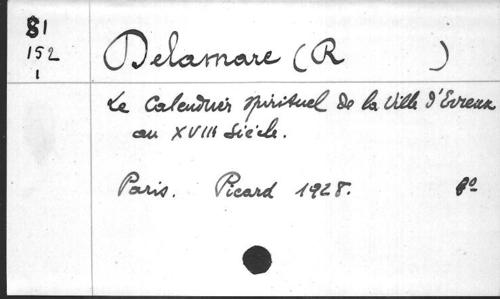 81
152
1
Delamare (R )
Le Calendrier spirituel de la Ville d'Evreux
au XVIII siècle.
Paris. Picard 1928. 8°